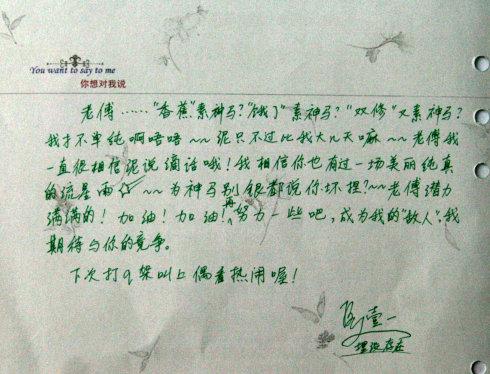 You want to say to me
你想对我说
老傅……"香蕉"素神马?"饿了"素神马?"双修"又素神马?
我才不单纯啊唔唔~~泥只不过比我大几天嘛~~老傅我
一直很相信泥说滴话哦!我相信你也有过一场美丽纯真
的流星雨☆~~为神马别银都说你坏捏?~~老傅潜力
满满的!加油!加油!再努力一些吧,成为我的"敌人",我
期待与你的竞争。
下次打q架叫上偶看热闹喔!
壹一